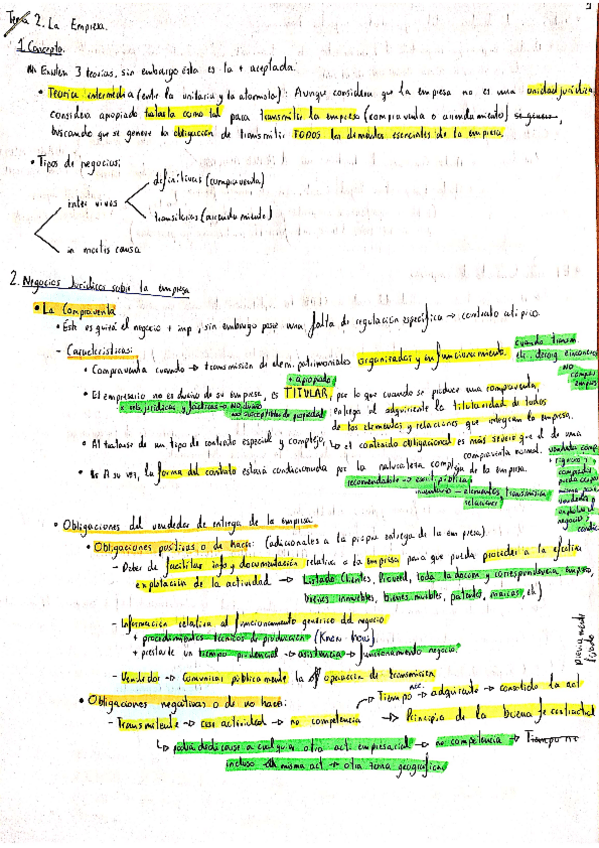 Tema 2. La Empresa.
1. Concepto.
Existen 3 teorías, sin embargo ésta es la + aceptada:
• Teoría intermedia (entre la unitaria y la atomista): Aunque considera que la empresa no es una unidad jurídica,
considera apropiado tratarla como tal para transmitir la empresa (compraventa o arrendamiento) se genere,
buscando que se genere la obligación de transmitir TODOS los elementos esenciales de la empresa.
• Tipos de negocios:
definitivas (compraventa)
inter vivos
transitorias (arrendamiento)
in mortis causa
2. Negocios Jurídicos sobre la empresa
• La Compraventa
• Este es quizá el negocio + imp, sin embargo posee una falta de regulación específica → contrato atípico.
- Características:
• Compraventa cuando → transmisión de elem. patrimoniales organizados y en funcionamiento.
cuando transm
elc. desorg.
NO
+ apropiado
• El empresario no es dueño de su empresa, es TITULAR, por lo que cuando se produce una compraventa,
no susceptibles de propiedad
entrega al adquirente la titularidad de todos
de los elementos y relaciones que integran la empresa.
• Al tratarse de un tipo de contrato especial y complejo, ↳ el contenido obligacional es más severo que el de una
compraventa normal.
• A su vez, la forma del contrato estará condicionada por la naturaleza compleja de la empresa.
recomendable → escrit. pública
inventario – elementos, transmisión
relaciones
• Obligaciones del vendedor de entrega de la empresa:
• Obligaciones positivas o de hacer: (adicionales a la propia entrega de la empresa)
- Deber de facilitar info y documentación relativa a la empresa para que pueda proceder a la efectiva
explotación de la actividad → Listado clientes, Proveed, toda la docum y correspondencia empresa,
bienes inmuebles, bienes muebles, patentes, marcas, etc)
- Información relativa al funcionamiento genérico del negocio
+ procedimientos técnicos de producción (Know how).
+ prestarle un tiempo prudencial → asistencia → funcionamiento negocio.
- Vendedor → Comunicar públicamente la operación de transmisión
• Obligaciones negativas o de no hacer:
Tiempo nec. → adquirente → consolida la act
- Transmitente → cese actividad → no competencia → Principio de la buena fe contractual
↳ podrá dedicarse a cualquier otra act. empresarial → no competencia → Tiempo no
incluso misma act → otra zona geográfica